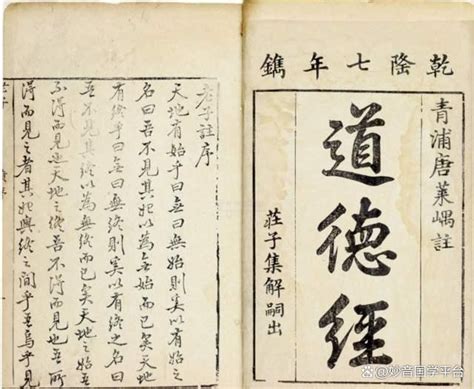 乾隆七年鐫
青浦唐萊嵎註
道德經
莊子集解嗣出
老子註序
天地有始乎曰無曰無始則奚以有始之
名曰吾不見其始以為無始而已矣天地
有終乎曰無曰無終則奚以有終之名曰
吾不見其終以為無終而已矣天地之始
不得而見也天地之終吾不得而見也吾所
得而見之者其始與終之間乎吾烏乎見
@妙音国学平台